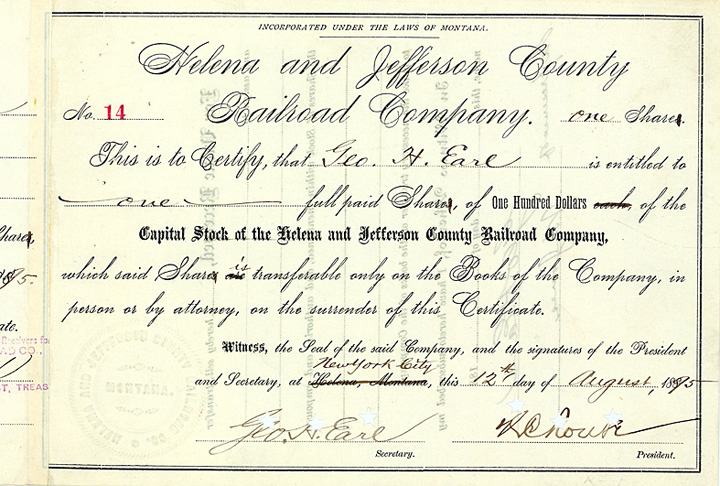 INCORPORATED UNDER THE LAWS OF MONTANA.
Helena and Jefferson County
No. 14 Railroad Company. one Share
This is to Certify, that Geo. H. Earl is entitled to
one full paid Share, of One Hundred Dollars each, of the
Capital Stock of the Helena and Jefferson County Railroad Company,
which said Share is transferable only on the Books of the Company, in
person or by attorney, on the surrender of this Certificate.
Witness, the Seal of the said Company, and the signatures of the President
New York City
and Secretary, at Helena, Montana, this 12th day of August, 1895
Geo. H. Earl
Secretary. President.
Share
95.
ate.
Receivers for
AD CO.
ST, TREAS